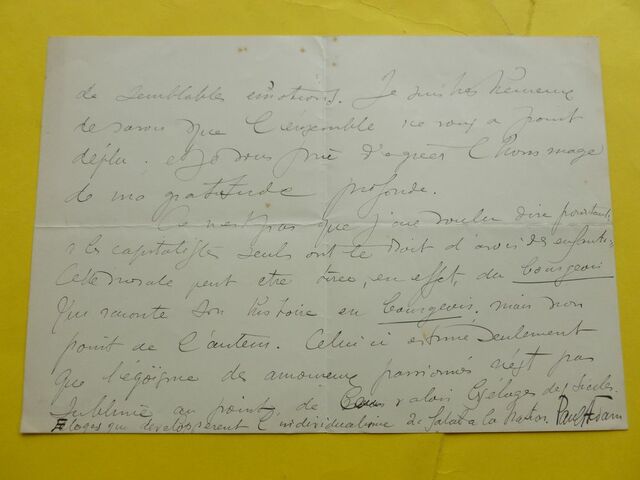 de semblables émotions. Je suis très heureux
de savoir que l'ensemble ne vous a point
déplu. et je vous prie d'agréer l'hommage
de ma gratitude profonde.
Ce n'est pas que j'aie voulu dire pourtant
les capitalistes seuls ont le droit d'avoir des enfants.
Cette morale peut être tirée, en effet, du bourgeois
qui raconte son histoire en bourgeois, mais non
point de l'auteur. Celui ci estime seulement
que l'égoïsme de amoureux passionnés n'est pas
sublime au point de valoir les éloges des siècles.
Eloges qui développèrent l'individualisme de à la nation. Paul Adam